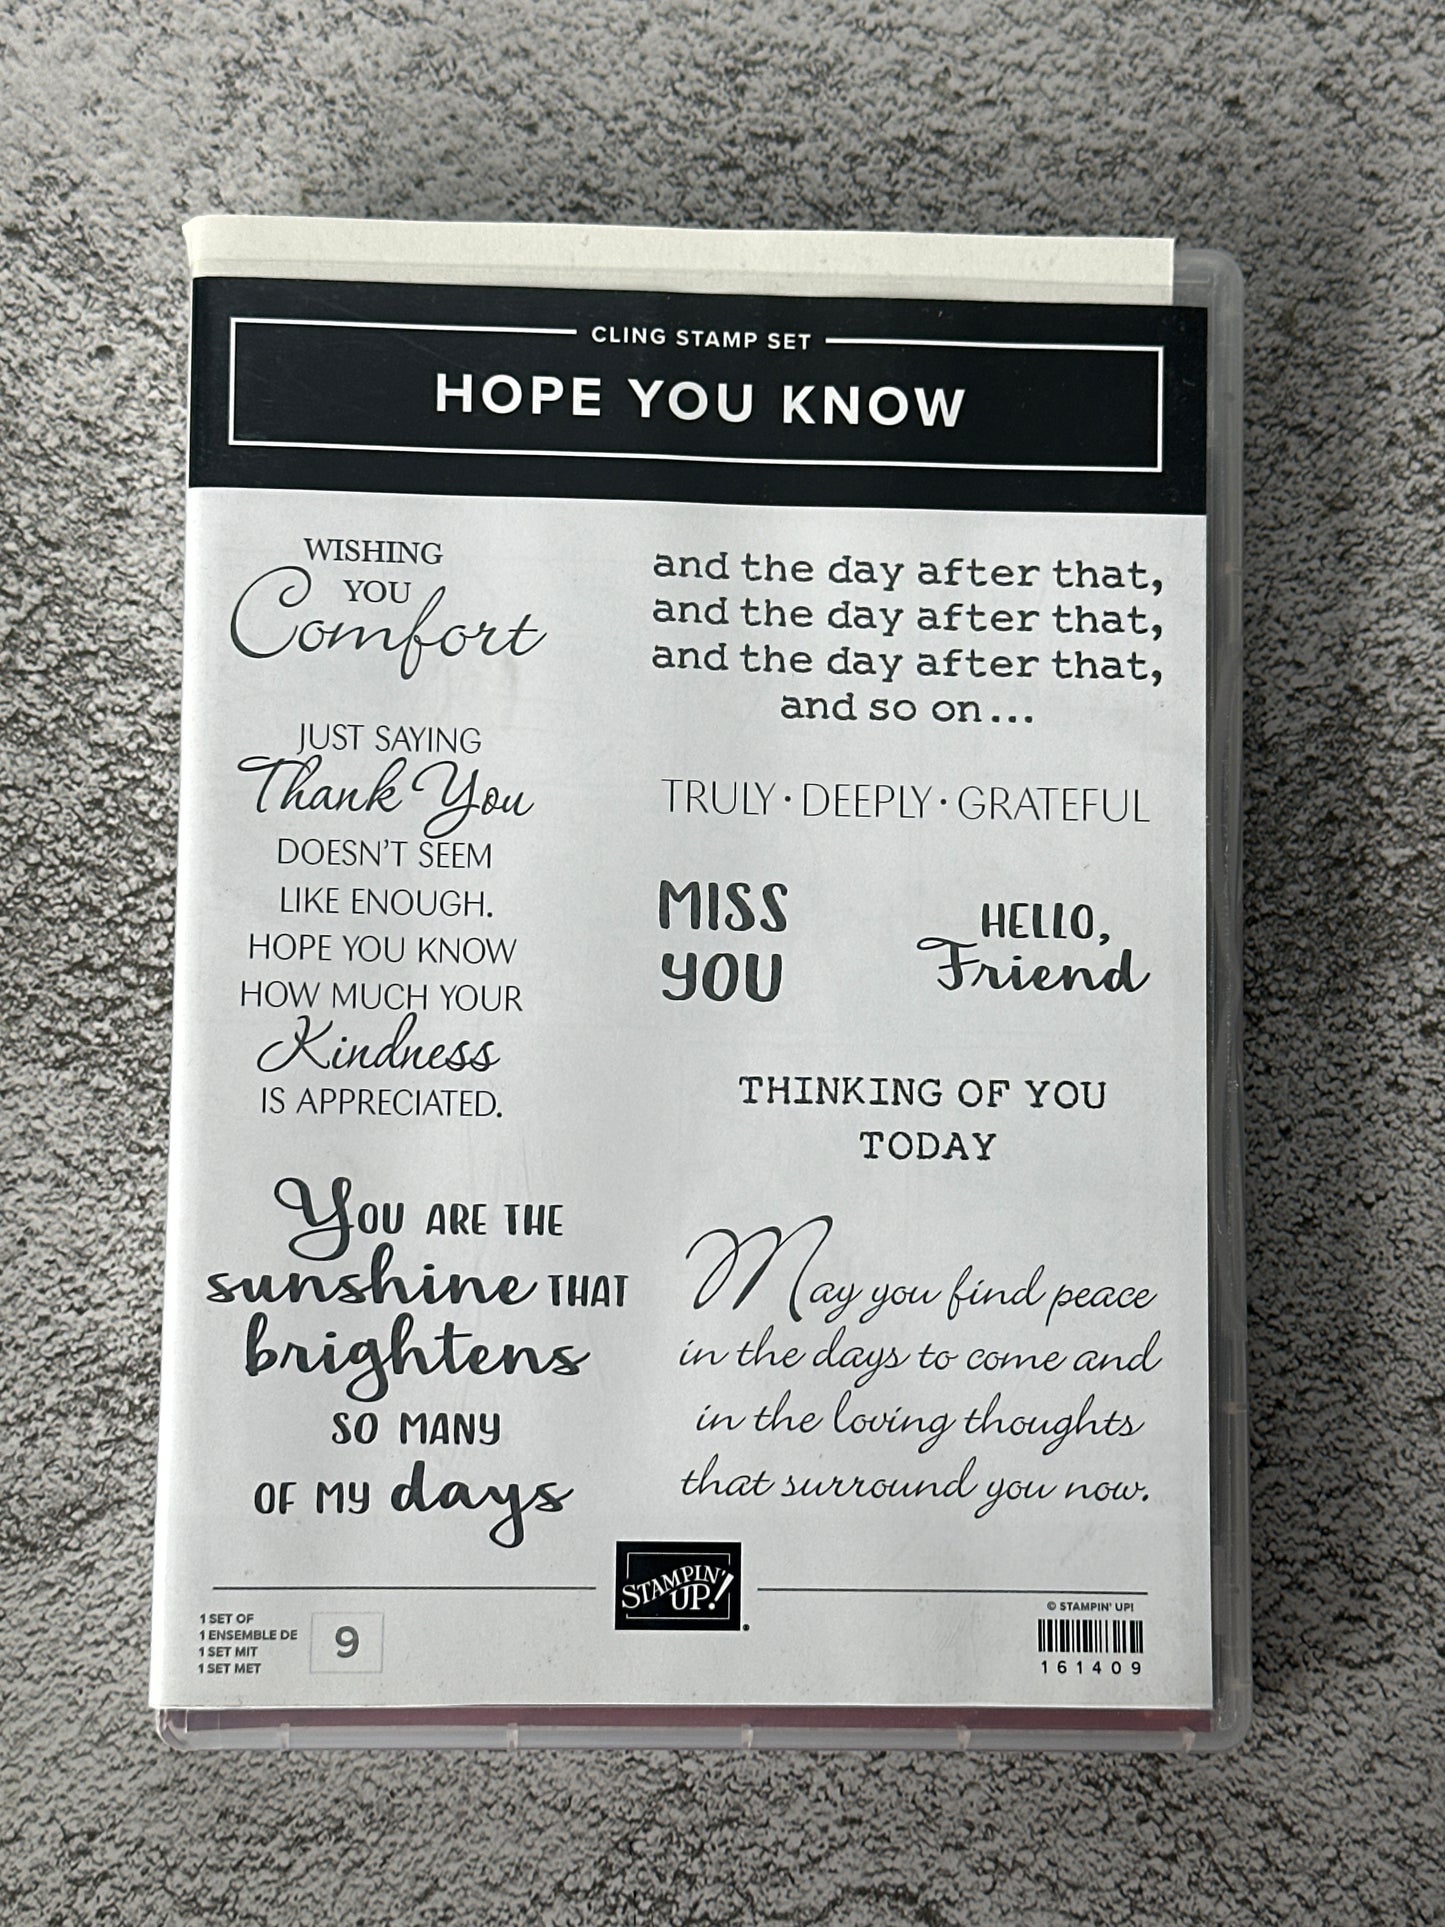 CLING STAMP SET
HOPE YOU KNOW
WISHING
YOU
Comfort
JUST SAYING
Thank You
DOESN'T SEEM
LIKE ENOUGH.
HOPE YOU KNOW
HOW MUCH YOUR
Kindness
IS APPRECIATED.
YOU ARE THE
sunshine THAT
brightens
SO MANY
OF MY days
and the day after that,
and the day after that,
and the day after that,
and so on...
TRULY · DEEPLY · GRATEFUL
MISS
YOU
HELLO,
Friend
THINKING OF YOU
TODAY
May you find peace
in the days to come and
in the loving thoughts
that surround you now.
1 SET OF
1 ENSEMBLE DE
1 SET MIT
1 SET MET
9
STAMPIN'
UP!
© STAMPIN' UP!
161409